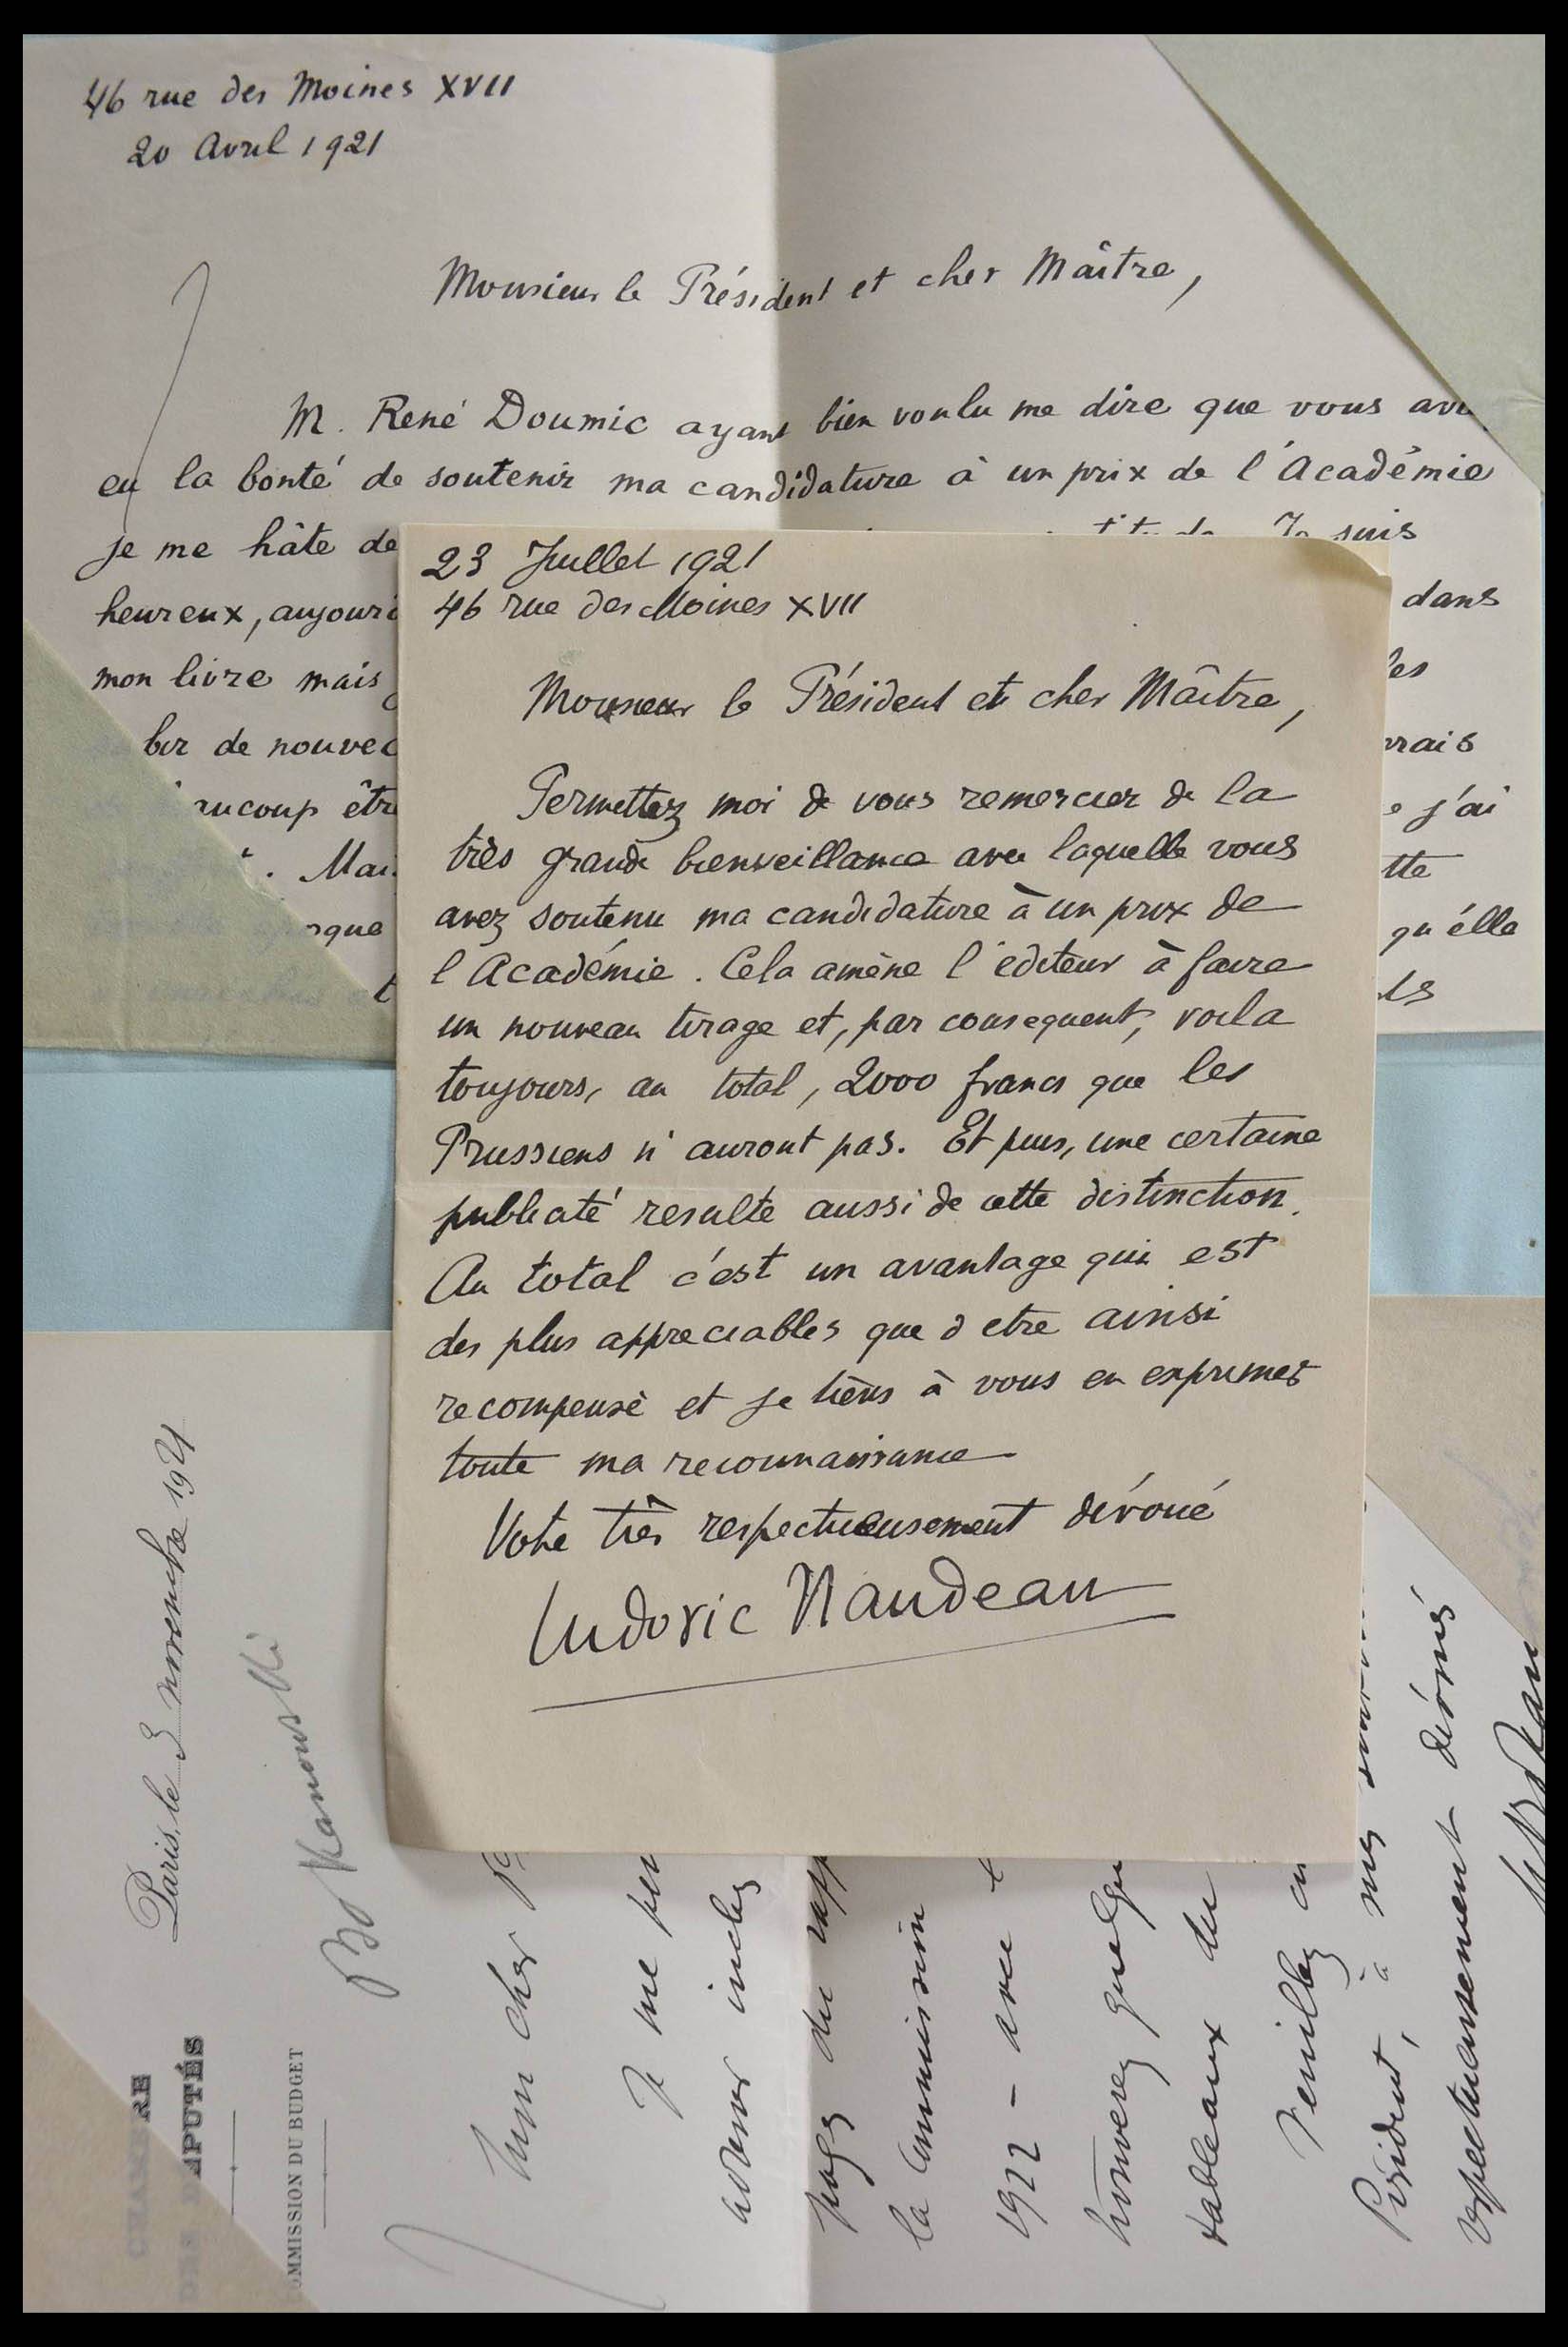 46 rue des Moines XVII
20 Avril 1921
Monsieur le Président et cher Maître,
M. René Doumic ayant bien voulu me dire que vous ave
eu la bonté de soutenir ma candidature à un prix de l'Académie
je me hâte de
Je suis
heureux, aujourd
dans
mon livre mais
les
de nouvea
rrais
aucoup être
j'ai
Mai
tte
oque
qu'élle
23 Juillet 1921
46 rue des Moines XVII
Monsieur le Président et cher Maître,
Permettez moi de vous remercier de la
très grande bienveillance avec laquelle vous
avez soutenu ma candidature à un prix de
l'Académie. Cela amène l'éditeur à faire
un nouveau tirage et, par consequent, voila
toujours, au total, 2000 francs que les
Prussiens n'auront pas. Et puis, une certaine
publicité resulte aussi de cette distinction.
Au total c'est un avantage qui est
des plus appreciables que d etre ainsi
recompensé et je tiens à vous en exprimer
toute ma reconnaissance
Votre très respectueusement dévoué
Ludovic Naudeau
CHAMBRE
DES DÉPUTÉS
OMMISSION DU BUDGET
Paris, le 3 novembre 1921
Bokanowski
Mon cher
Je me per
adresser inclus
pages du rapp
la Commission
1922 - avec
trouverez quelqu
tableaux du
Veuillez
Président, à mes
respectueusement dévoués